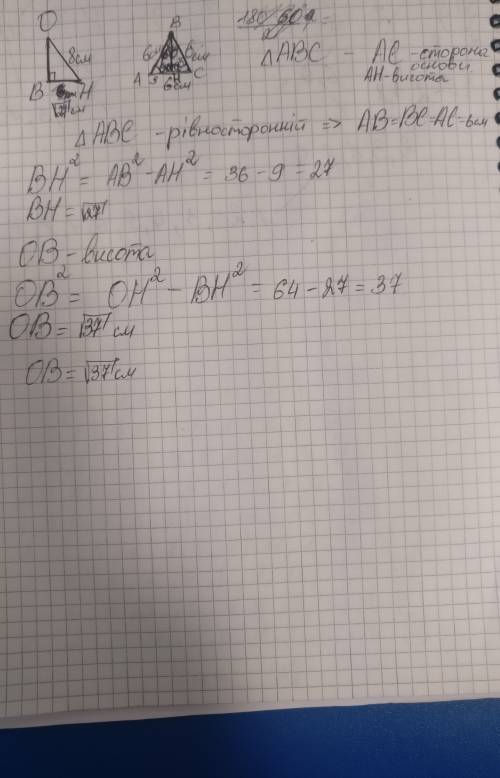 O
8см
B H
√27 см
B
6см 6см
A 3 C
6см
△ABC - AC - сторона
основи
AH - висота
△ABC - рівносторонній => AB=BC=AC=6см
BH² = AB² - AH² = 36 - 9 = 27
BH = √27
OB - висота
OB² = OH² - BH² = 64 - 27 = 37
OB = √37 см
OB = √37 см